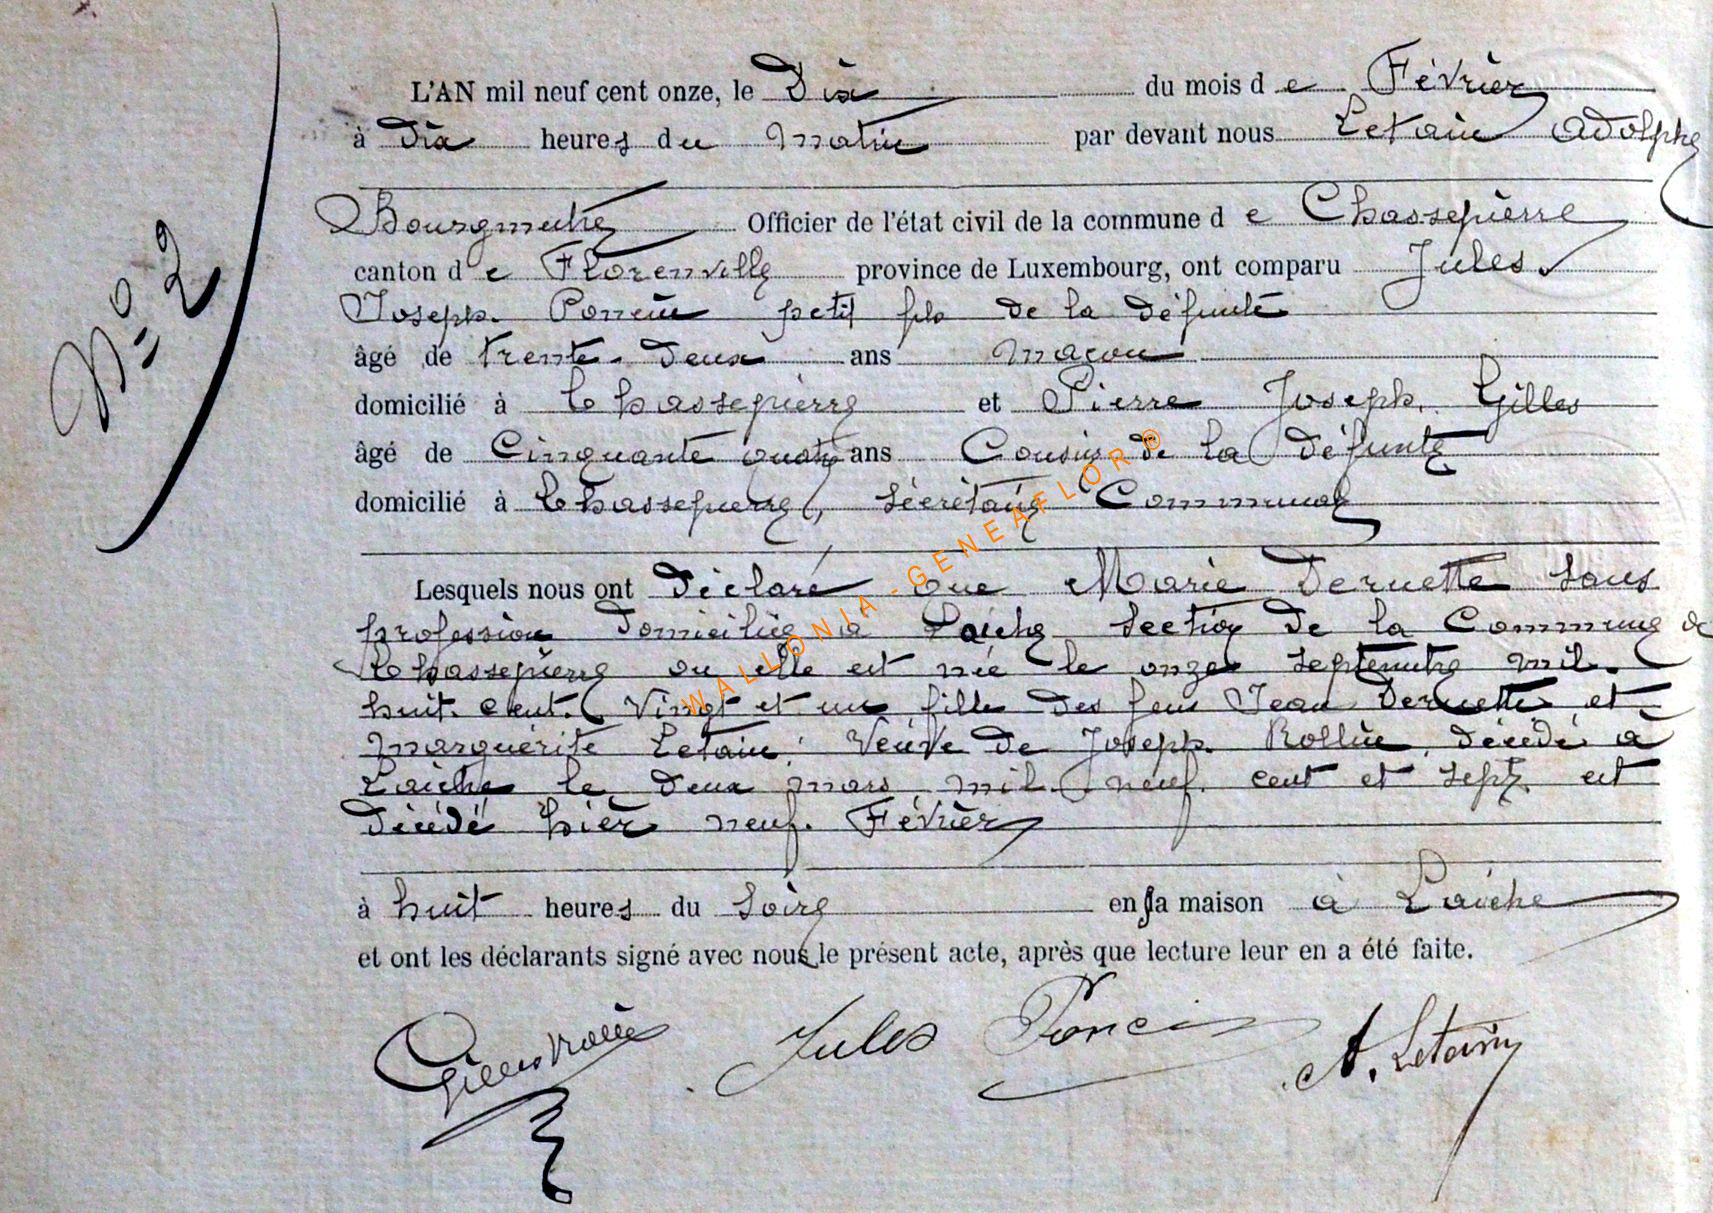 L'AN mil neuf cent onze, le Dix du mois de Février
à dix heures du matin par devant nous Letain Adolphe
Bourgmestre Officier de l'état civil de la commune de Chassepierre
canton de Florenville province de Luxembourg, ont comparu Jules
Joseph Poncin petit fils de la défunte
âgé de trente-deux ans maçon
domicilié à Chassepierre et Pierre Joseph Gilles
âgé de Cinquante quatre ans Cousin de la défunte
domicilié à Chassepierre, Sécrétaire Communal
N° 2
Lesquels nous ont déclaré que Marie Dernette sans
profession domiciliée à Laiche section de la Commune de
Chassepierre ou elle est née le onze septembre mil
huit cent Vingt et un fille des feus Jean Dernette et
Marguérite Letain, Veuve de Joseph Rollin, décédé à
Laiche le deux mars mil neuf cent et sept est
décédé hièr neuf Février
à huit heures du soire en sa maison à Laiche
et ont les déclarants signé avec nous le présent acte, après que lecture leur en a été faite.
Gilles Jules Poncin A. Letain
WALLONIA-GENEAFLOR®